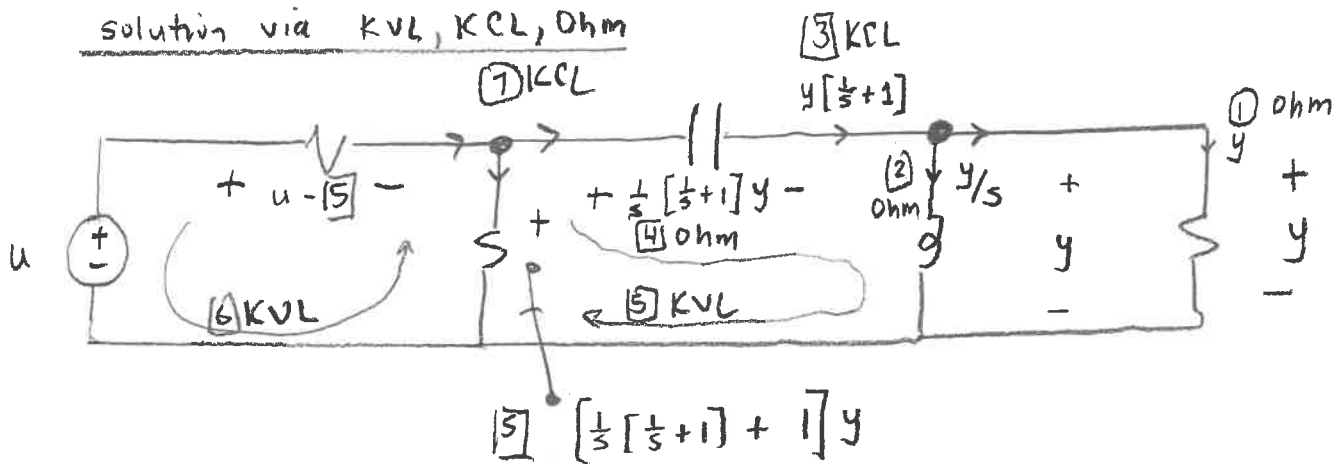 solution via KVL, KCL, Ohm
[7] KCL
[3] KCL
y[1/s+1]
① Ohm
y
+ u-[5] -
+ 1/s [1/s+1] y -
[4] Ohm
[2]
Ohm
y/s
+
y
-
+
y
-
u
+
-
+
-
[6] KVL
[5] KVL
[5] [1/s [1/s+1] + 1] y